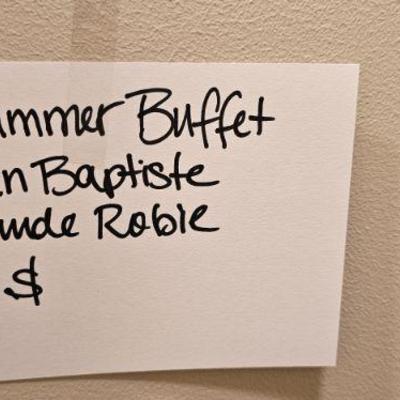 ummer Buffet
n Baptiste
ude Robie
$